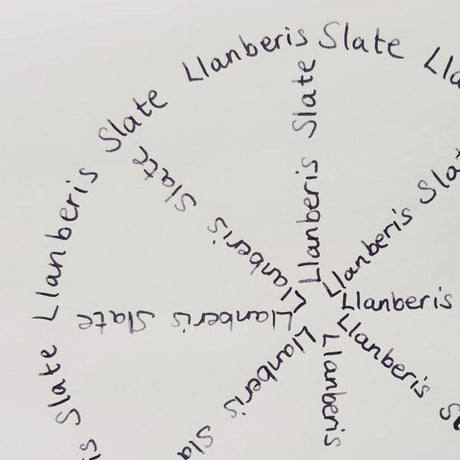 is Slate Llanberis Slate Llanberis Slate Lla
Llanberis Slate
Llanberis Sla
Llanberis
Llanberis
Llanberis
Llanberis Sla
Llanberis Slate
Llanberis Slate